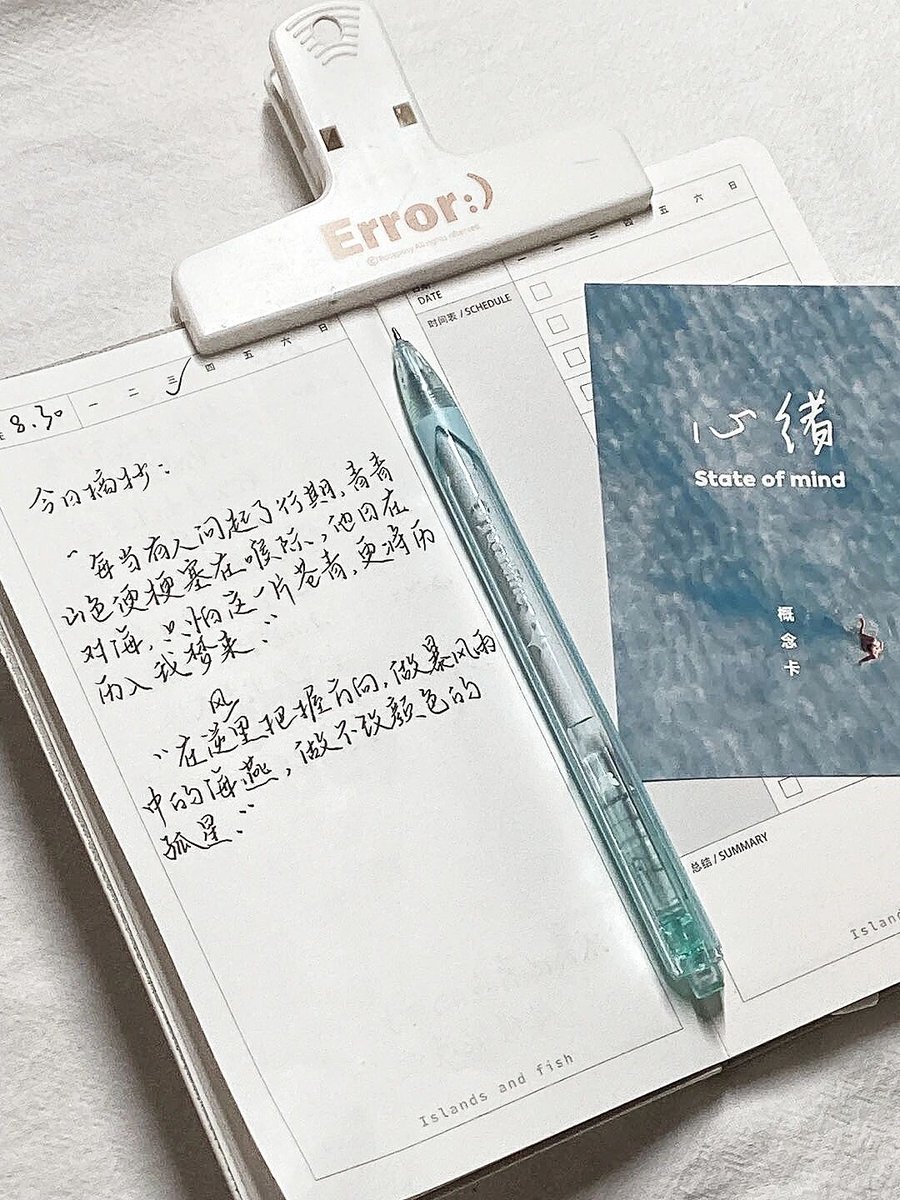 Error:)
一 二 三 四 五 六 日
8.30
今日摘抄：
“每当有人问起了行期，青青
山色便梗塞在喉际，他日在
对海，只怕这一片苍青，更将历
历入我梦来。”
风
“在逆里把握方向，做暴风雨
中的海燕，做不改颜色的
孤星。”
Islands and fish
一 二 三 四 五 六 日
DATE
时间表 / SCHEDULE
心绪
State of mind
概念卡
总结 / SUMMARY